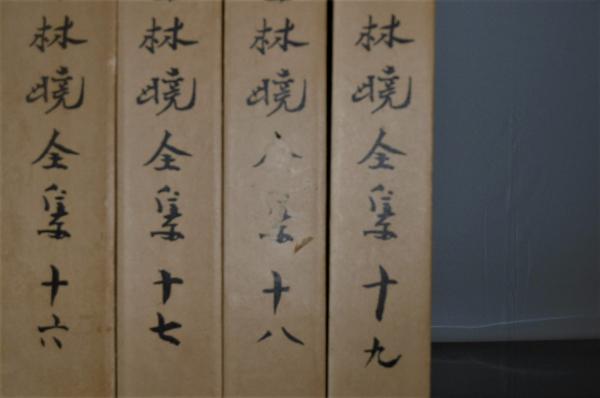 林暁全集十六
林暁全集十七
林暁全集十八
林暁全集十九